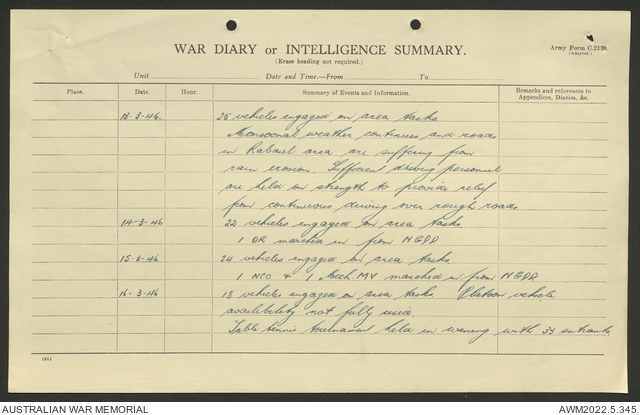 WAR DIARY or INTELLIGENCE SUMMARY.
(Erase heading not required.)
Army Form C.2118.
(Adapted.)
Unit Date and Time.—From To
Place. Date. Hour. Summary of Events and Information. Remarks and references to Appendices, Diaries, &c.
13-3-46. 25 vehicles engaged on area tasks
Monsoonal weather continues and roads
in Rabaul area are suffering from
rain erosion. Sufficient driving personnel
are held on strength to provide relief
from continuous driving over rough roads
14-3-46 22 vehicles engaged on area tasks.
1 OR marched in from NGDD
15-3-46 24 vehicles engaged on area tasks
1 NCO & 1 Mech. MV marched in from NGDD
16-3-46 18 vehicles engaged on area tasks Platoon vehicle
availibility not fully used.
Table tennis tournament held in evening with 33 entrants
(51)
AUSTRALIAN WAR MEMORIAL AWM2022.5.345